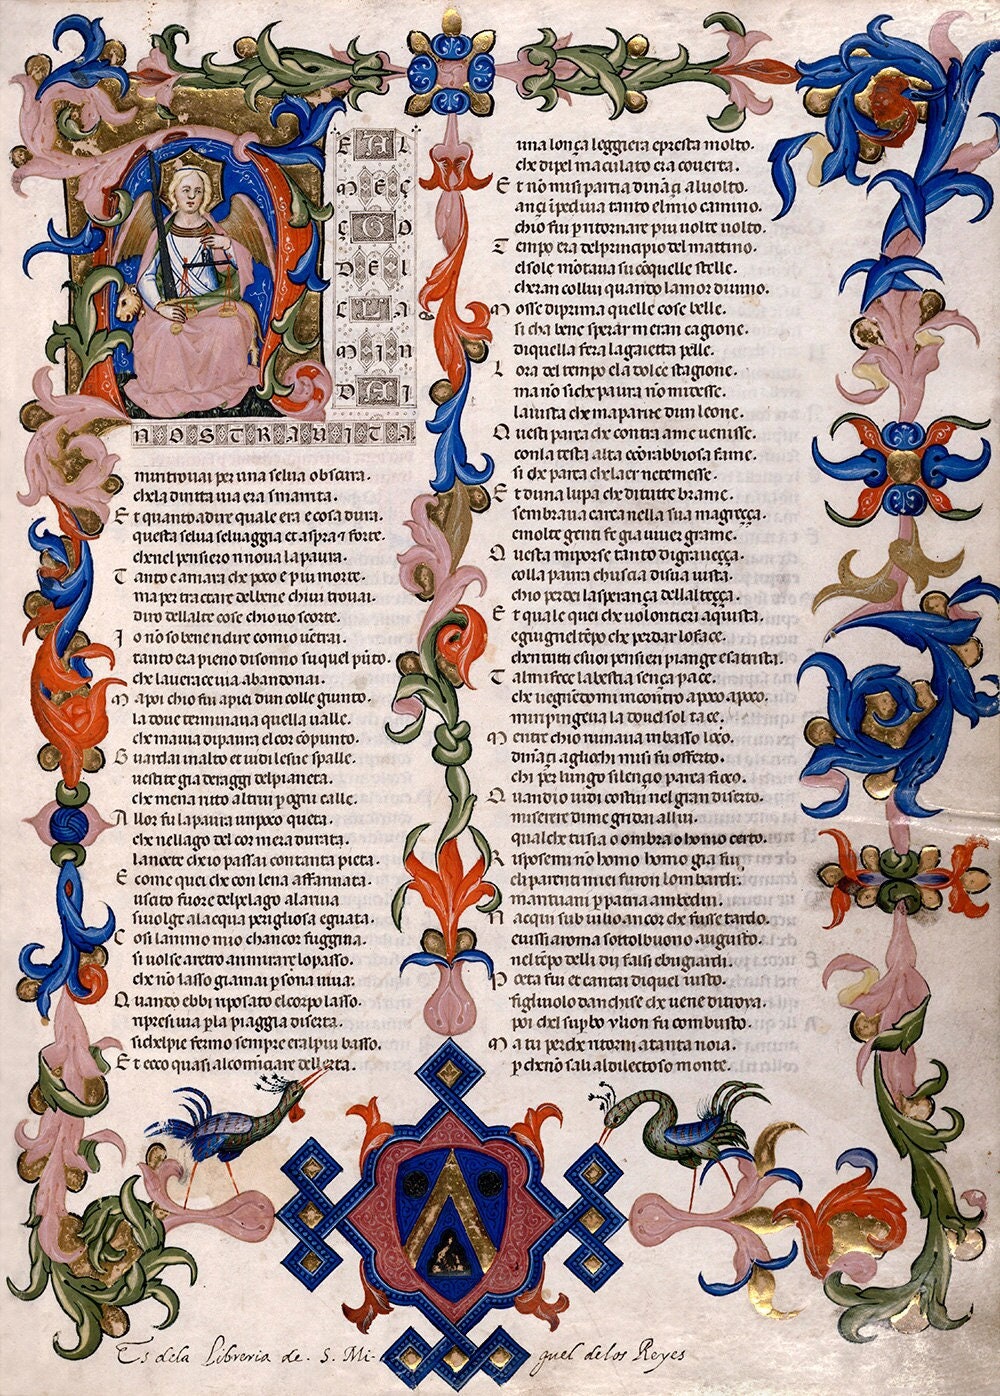 EL
MEÇ
ÇO
DEL
CLA
MIN
DAI
NOSTRAUITA
miritrouai per una selua obscura.
chela diritta uia era smarrita.
Et quanto adire quale era e cosa dura.
questa selua seluaggia et aspra 7 forte.
che nel pensiero rinoua la paura.
Tanto e amara che poco e piu morte.
ma per tractare del bene chiui trouai.
diro dellalte cose chio uo scorte.
Io nõ so bene ridire comio uẽtrai.
tanto era pieno disonno su quel pũto.
che lauerace uia abandonai.
Mapoi chio fui apiei dun colle giunto.
la doue terminaua quella ualle.
che mauia dipaura el cor cõpunto.
Guardai inalto et uidi lesue spalle.
uestite gia deraggi del pianeta.
che mena ritto altrui p ogni calle.
Allor fu la paura un poco queta.
che nellago del cor mera durata.
la nocte chio passai contanta pieta.
E come quei che con lena affannata.
uscito fuore del pelago alariua
si uolge alacqua perigliosa eguata.
Cosi lanimo mio chancor fuggiua.
si uolse aretro arimirare lo passo.
che nõ lasso giamai psona uiua.
Quando ebbi riposato el corpo lasso.
ripresi uia pla piaggia diserta.
si chelpie fermo sempre era lpiu basso.
Et ecco quasi al comĩciare dellerta.
una lonça leggiera e presta molto.
che di pel maculato era couerta.
Et nõ mi si partia dinãçi al uolto.
ançi ĩpediua tanto el mio camino.
chio fui p ritornare piu uolte uolto.
Tempo era del principio del mattino.
el sole mõtaua su cõ quelle stelle.
cheran collui quando lamor diuino.
Mosse di prima quelle cose belle.
si cha bene sperar mera n cagione.
di quella fera la gaietta pelle.
Lora del tempo e la dolce stagione.
ma nõ si che paura nõ mi desse.
la uista che mapparue dun leone.
Questi parea che contra a me uenisse.
con la testa alta e cõ rabbiosa fame.
si che parea che laer ne temesse.
Et duna lupa che di tutte brame.
sembraua carca nella sua magreçça.
e molte genti fe gia uiuer grame.
Questa mi porse tanto di graueçça.
colla paura chuscia di sua uista.
chio perdei la sperança dellalteçça.
Et quale quei che uolontieri aq̃uista.
e giugnel tẽpo che perdar lo face.
che n tutti e suoi pensier piange e satrista.
Tal mi fece la bestia sença pace.
che uegnẽdomi incontro a poco apoco.
mi ripingeua la doue l sol tace.
Mentre chio ruinaua in basso loco.
dinãçi agliochi mi si fu offerto.
chi per lungo silençio parea fioco.
Quando uidi costui nel gran diserto.
miserere di me gridai allui.
qual che tu sia o ombra o homo certo.
Risposemi nõ homo homo gia fui
e li parenti miei furon lombardi.
mantuani p patria ambedui.
Nacqui sub iulio ancor che fusse tardo.
e uissi a roma sotto l buono augusto.
nel tẽpo delli dij falsi e bugiardi.
Poeta fui et cantai di quel iusto.
figliuolo danchise che uene di troya.
poi chel supbo ylion fu combusto.
Ma tu perche ritorni a tanta noia.
p che nõ sali al dilectoso monte.
Es dela Libreria de. S. Mi-guel delos Reyes